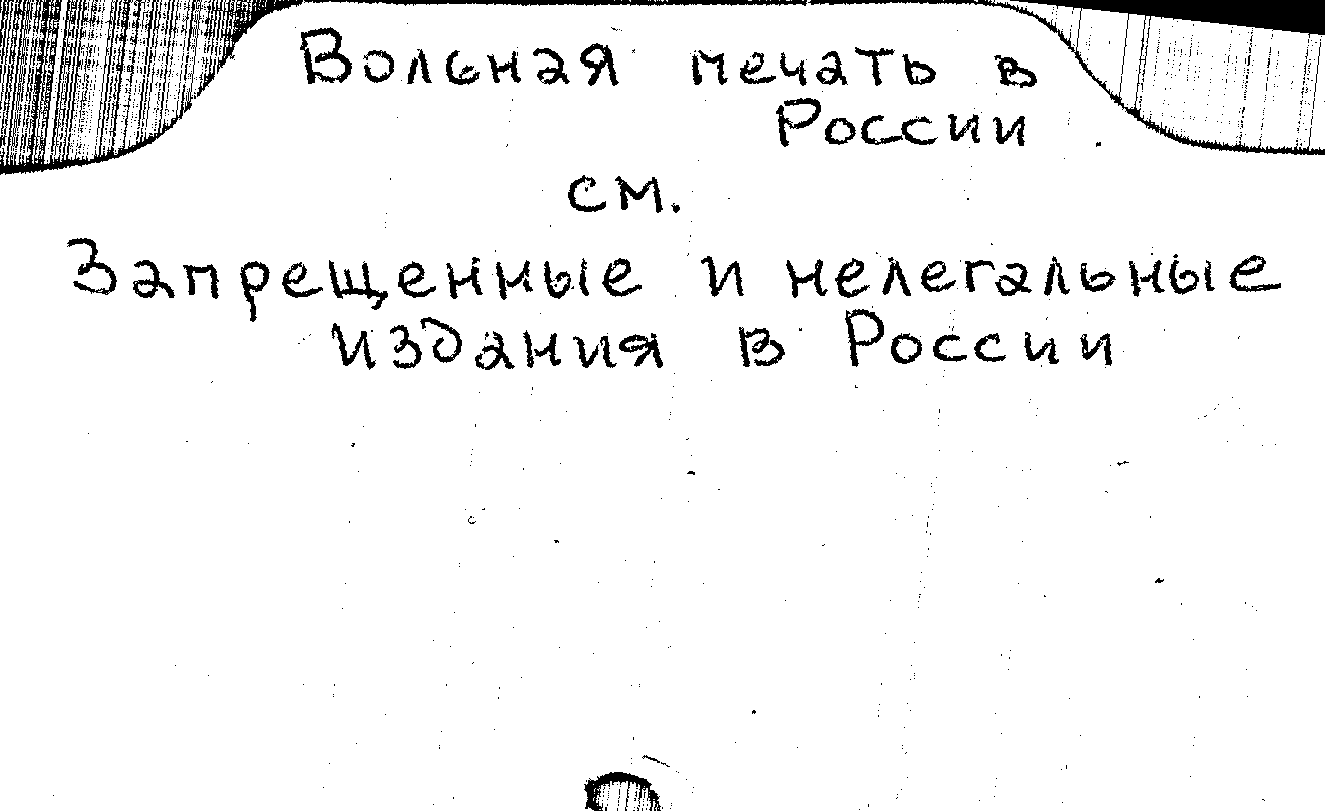 Вольная печать в
России
см.
Запрещенные и нелегальные
издания в России